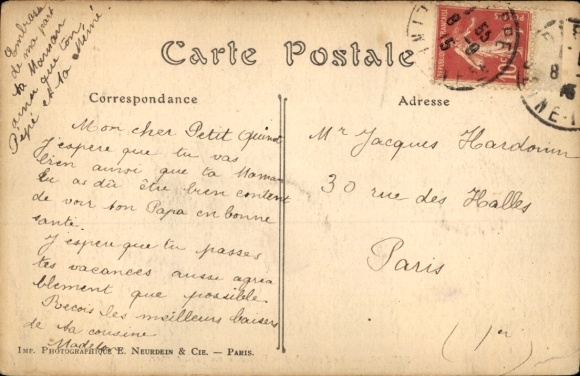 Embrasse
de ma part
ta Maman
ainsi que ton
Pépé et ta Mémé.
Carte Postale
Correspondance
Adresse
Mon cher Petit
J'espère que tu vas
bien ainsi que ta Maman
Tu as dû être bien content
de voir ton Papa en bonne
santé.
J'espère que tu passes
tes vacances aussi agréa
blement que possible.
Recois les meilleurs baisers
de ta cousine
Mr Jacques Hardouin
30 rue des Halles
Paris
(1er)
Imp. Photographique E. Neurdein & Cie. — Paris.
10